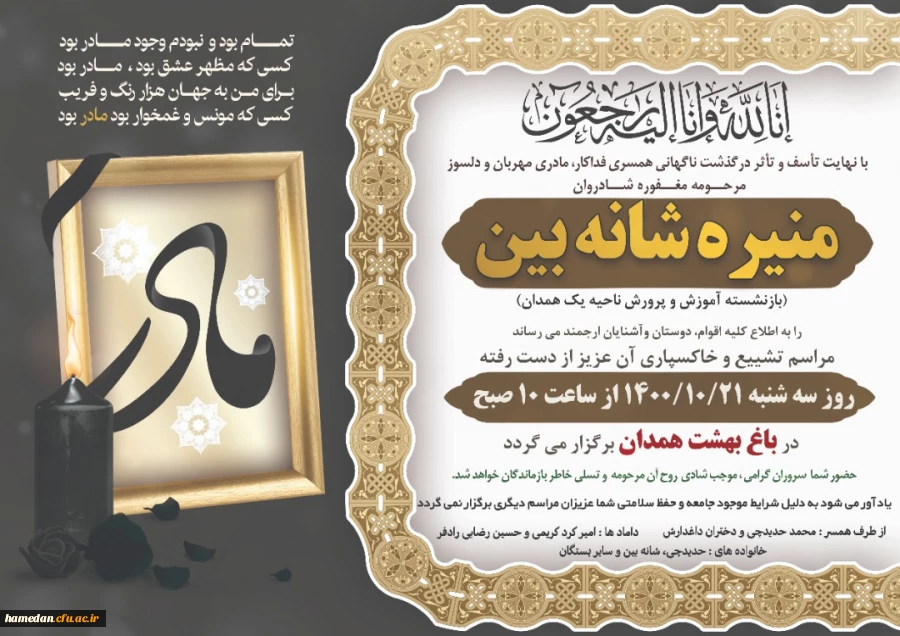 تمـــام بود و نبودم وجود مـــادر بود
کسی که مظهر عشق بود ، مـــادر بود
برای من به جهـان هزار رنگ و فریب
کسی که مونس و غمخوار بود مادر بود
مادر
انا لله و انا الیه راجعون
با نهایت تأسف و تأثر درگذشت ناگهانی همسری فداکار، مادری مهربان و دلسوز
مرحـومه مغـفوره شـادروان
منیره شانه بین
(بازنشسته آموزش و پرورش ناحیه یک همدان)
را به اطلاع کلیه اقوام، دوستان وآشنایان ارجمند می رساند
مراسم تشییع و خاکسپاری آن عزیز از دست رفته
روز سه شنبه ۱۴۰۰/۱۰/۲۱ از ساعت ۱۰ صبح
در باغ بهشت همدان برگزار می گردد
حضور شما سروران گرامی، موجب شادی روح آن مرحومه و تسلی خاطر بازماندگان خواهد شد.
یاد آور می شود به دلیل شرایط موجود جامعه و حفظ سلامتی شما عزیزان مراسم دیگری برگزار نمی گردد
از طرف همسر : محمد حدیدچی و دختران داغدارش داماد ها : امیر کرد کریمی و حسین رضایی رادفر
خانواده های : حدیدچی، شانه بین و سایر بستگان
hamedan.cfu.ac.ir